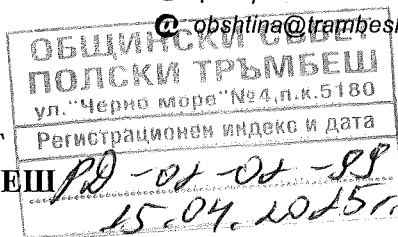 obshtina@trambesh
ОБЩИНСКИ СЪВЕТ
ПОЛСКИ ТРЪМБЕШ
ул."Черно море"№4,п.к.5180
Регистрационен индекс и дата
ЕШ РД-01-01-99
15.04.2015г.